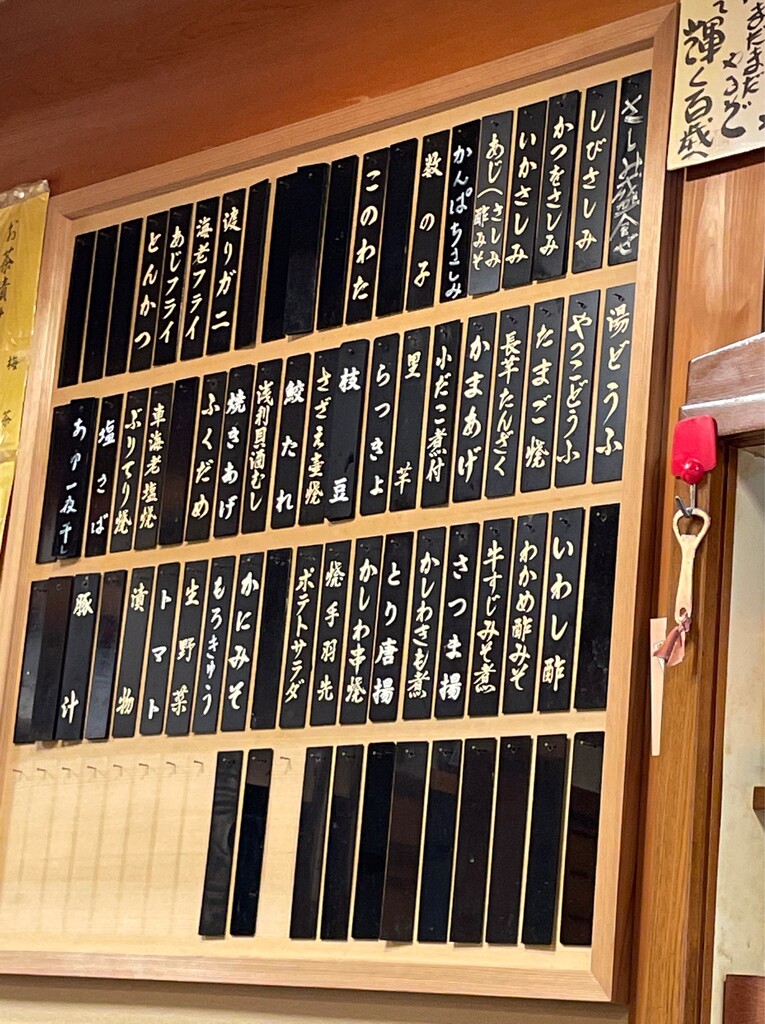 さしみ盛合せ
しびさしみ
かつをさしみ
いかさしみ
あじ(さしみ 酢みそ
かんぱちさしみ
数の子
このわた
渡りガニ
海老フライ
あじフライ
とんかつ
湯どうふ
やっこどうふ
たまご焼
長芋たんざく
かまあげ
小だこ煮付
里芋
らっきょ
枝豆
さざえ壺焼
鮫たれ
浅利貝酒むし
焼きあげ
ふくだめ
車海老塩焼
ぶりてり焼
塩さば
あゆ一夜干し
いわし酢
わかめ酢みそ
牛すじみそ煮
さつま揚
かしわきも煮
とり唐揚
かしわ串焼
焼手羽先
ポテトサラダ
かにみそ
もろきゅう
生野菜
トマト
漬物
豚汁
まだまだ
輝く百歳へ
お茶漬け
梅茶